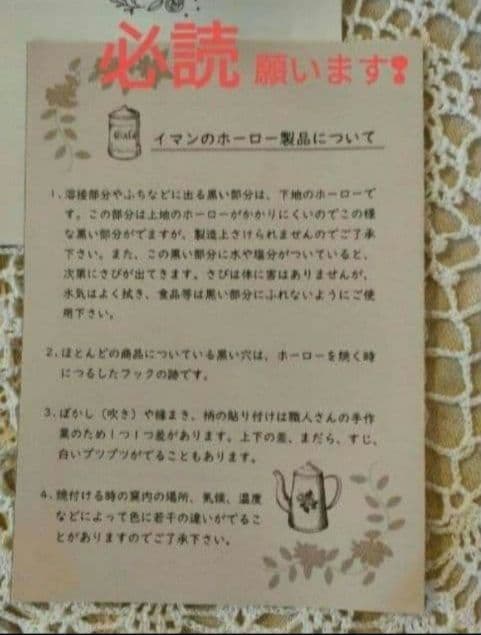 必読 願います❢
イマンのホーロー製品について
1.溶接部分やふちなどに出る黒い部分は、下地のホーローで
す。この部分は上地のホーローがかかりにくいのでこの様
な黒い部分がでますが、製造上さけられませんのでご了承
下さい。また、この黒い部分に水や塩分がついていると、
次第にさびが出てきます。さびは体に害はありませんが、
水気はよく拭き、食品等は黒い部分にふれないようにご使
用下さい。
2.ほとんどの商品についている黒い穴は、ホーローを焼く時
につるしたフックの跡です。
3.ぼかし(吹き)や縁まき、柄の貼り付けは職人さんの手作
業のため1つ1つ差があります。上下の差、まだら、すじ、
白いブツブツがでることもあります。
4.焼付ける時の窯内の場所、気候、温度
などによって色に若干の違いがでるこ
とがありますのでご了承下さい。